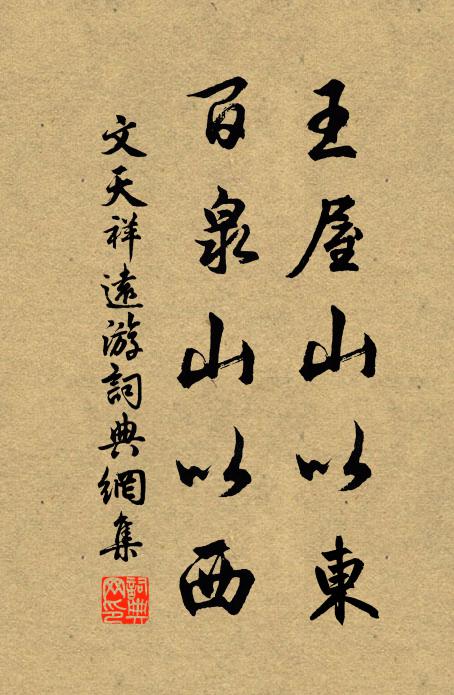 王屋山以東
百泉山以西
文天祥遠游詞典網集
詞典網印